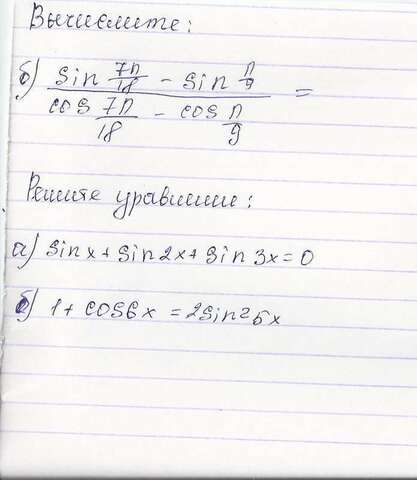 Вычислите:
б) (sin 7π/18 - sin π/9) / (cos 7π/18 - cos π/9) =
Решите уравнения:
а) sin x + sin 2x + sin 3x = 0
б) 1 + cos 6x = 2 sin² 5x